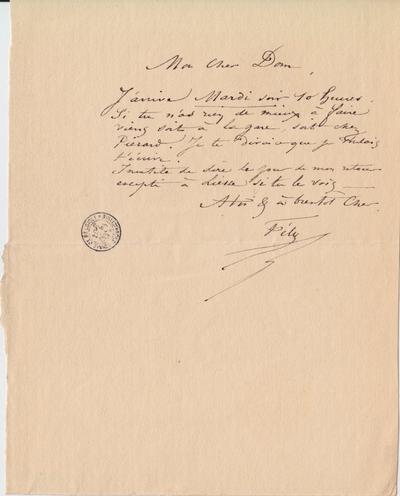 Mon cher Dom,
J'arrive Mardi soir 10 heures.
Si tu n'as rien de mieux à faire
viens soit à la gare, soit chez
Piérard. Je te dirai ce que je
t'écrire.
Inutile de dire le jour de mon retour
excepté à Liesse si tu le vois
à toi & à bientôt cher
Fély